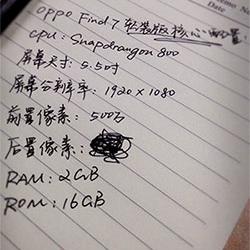 Date
oppo Find 7 轻装版核心配置:
CPU: Snapdragon 800
屏幕尺寸: 5.5吋
屏幕分辨率: 1920×1080
前置像素: 500万
后置像素:
RAM: 2GB
ROM: 16GB